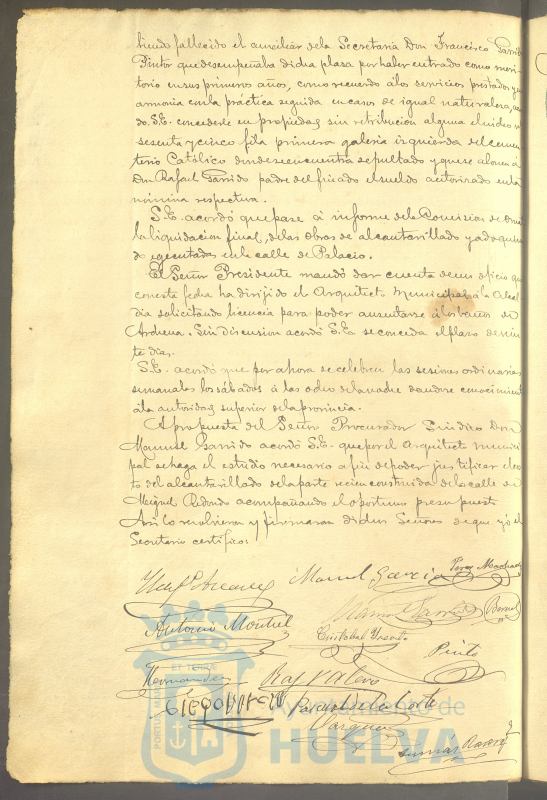 biendo fallecido el auxiliar de la Secretaria Don Francisco Garrido
Pintor que desempeñaba dicha plaza por haber entrado como meri-
torio en sus primeros años, como recuerdo a los servicios prestados y en
armonia con la práctica seguida en casos de igual naturaleza, acor
dó S.E. concederle en propiedad, sin retribucion alguna el nicho
sesenta y cinco fila primera galeria izquierda del cemen
terio Católico donde se encuentra sepultado y que se abone a
Don Rafael Garrido padre del finado el sueldo autorizado en la
nómina respectiva.
S.E. acordó que pase á informe de la Comision de
la liquidacion final, de las obras de alcantarillado y adoquina
do ejecutadas en la calle de Palacio.
El Señor Presidente mandó dar cuenta de un oficio que
con esta fecha ha dirijido el Arquitecto Municipal á la Alcal
dia solicitando licencia para poder ausentarse á los baños de
Archena. Sin discusion acordó S.E. se conceda el plazo de vein
te dias.
S.E. acordó que por ahora se celebren las sesiones ordinarias
semanales los sábados á las ocho de la noche dandose conocimiento
á la autoridad superior de la provincia.
A propuesta del Señor Procurador Sindico Don
Manuel Garrido acordó S.E. que por el Arquitecto munici
pal se haga el estudio necesario a fin de poder justificar el cos
to del alcantarillado de la parte recien construida de la calle de
Miguel Redondo acompañando el oportuno presupuesto
Asi lo resolvieron y firmaron dichos Señores de que yo el
Secretario certifico:
Manuel Garcia Perez Machado
Manuel Garrido
Antonio Montiel
Cristobal
Pinto
Hernandez Raf Valero
de la Corte
Vazquez
ET TERRAE
PORTUS MARIS
Ayuntamiento de
HUELVA